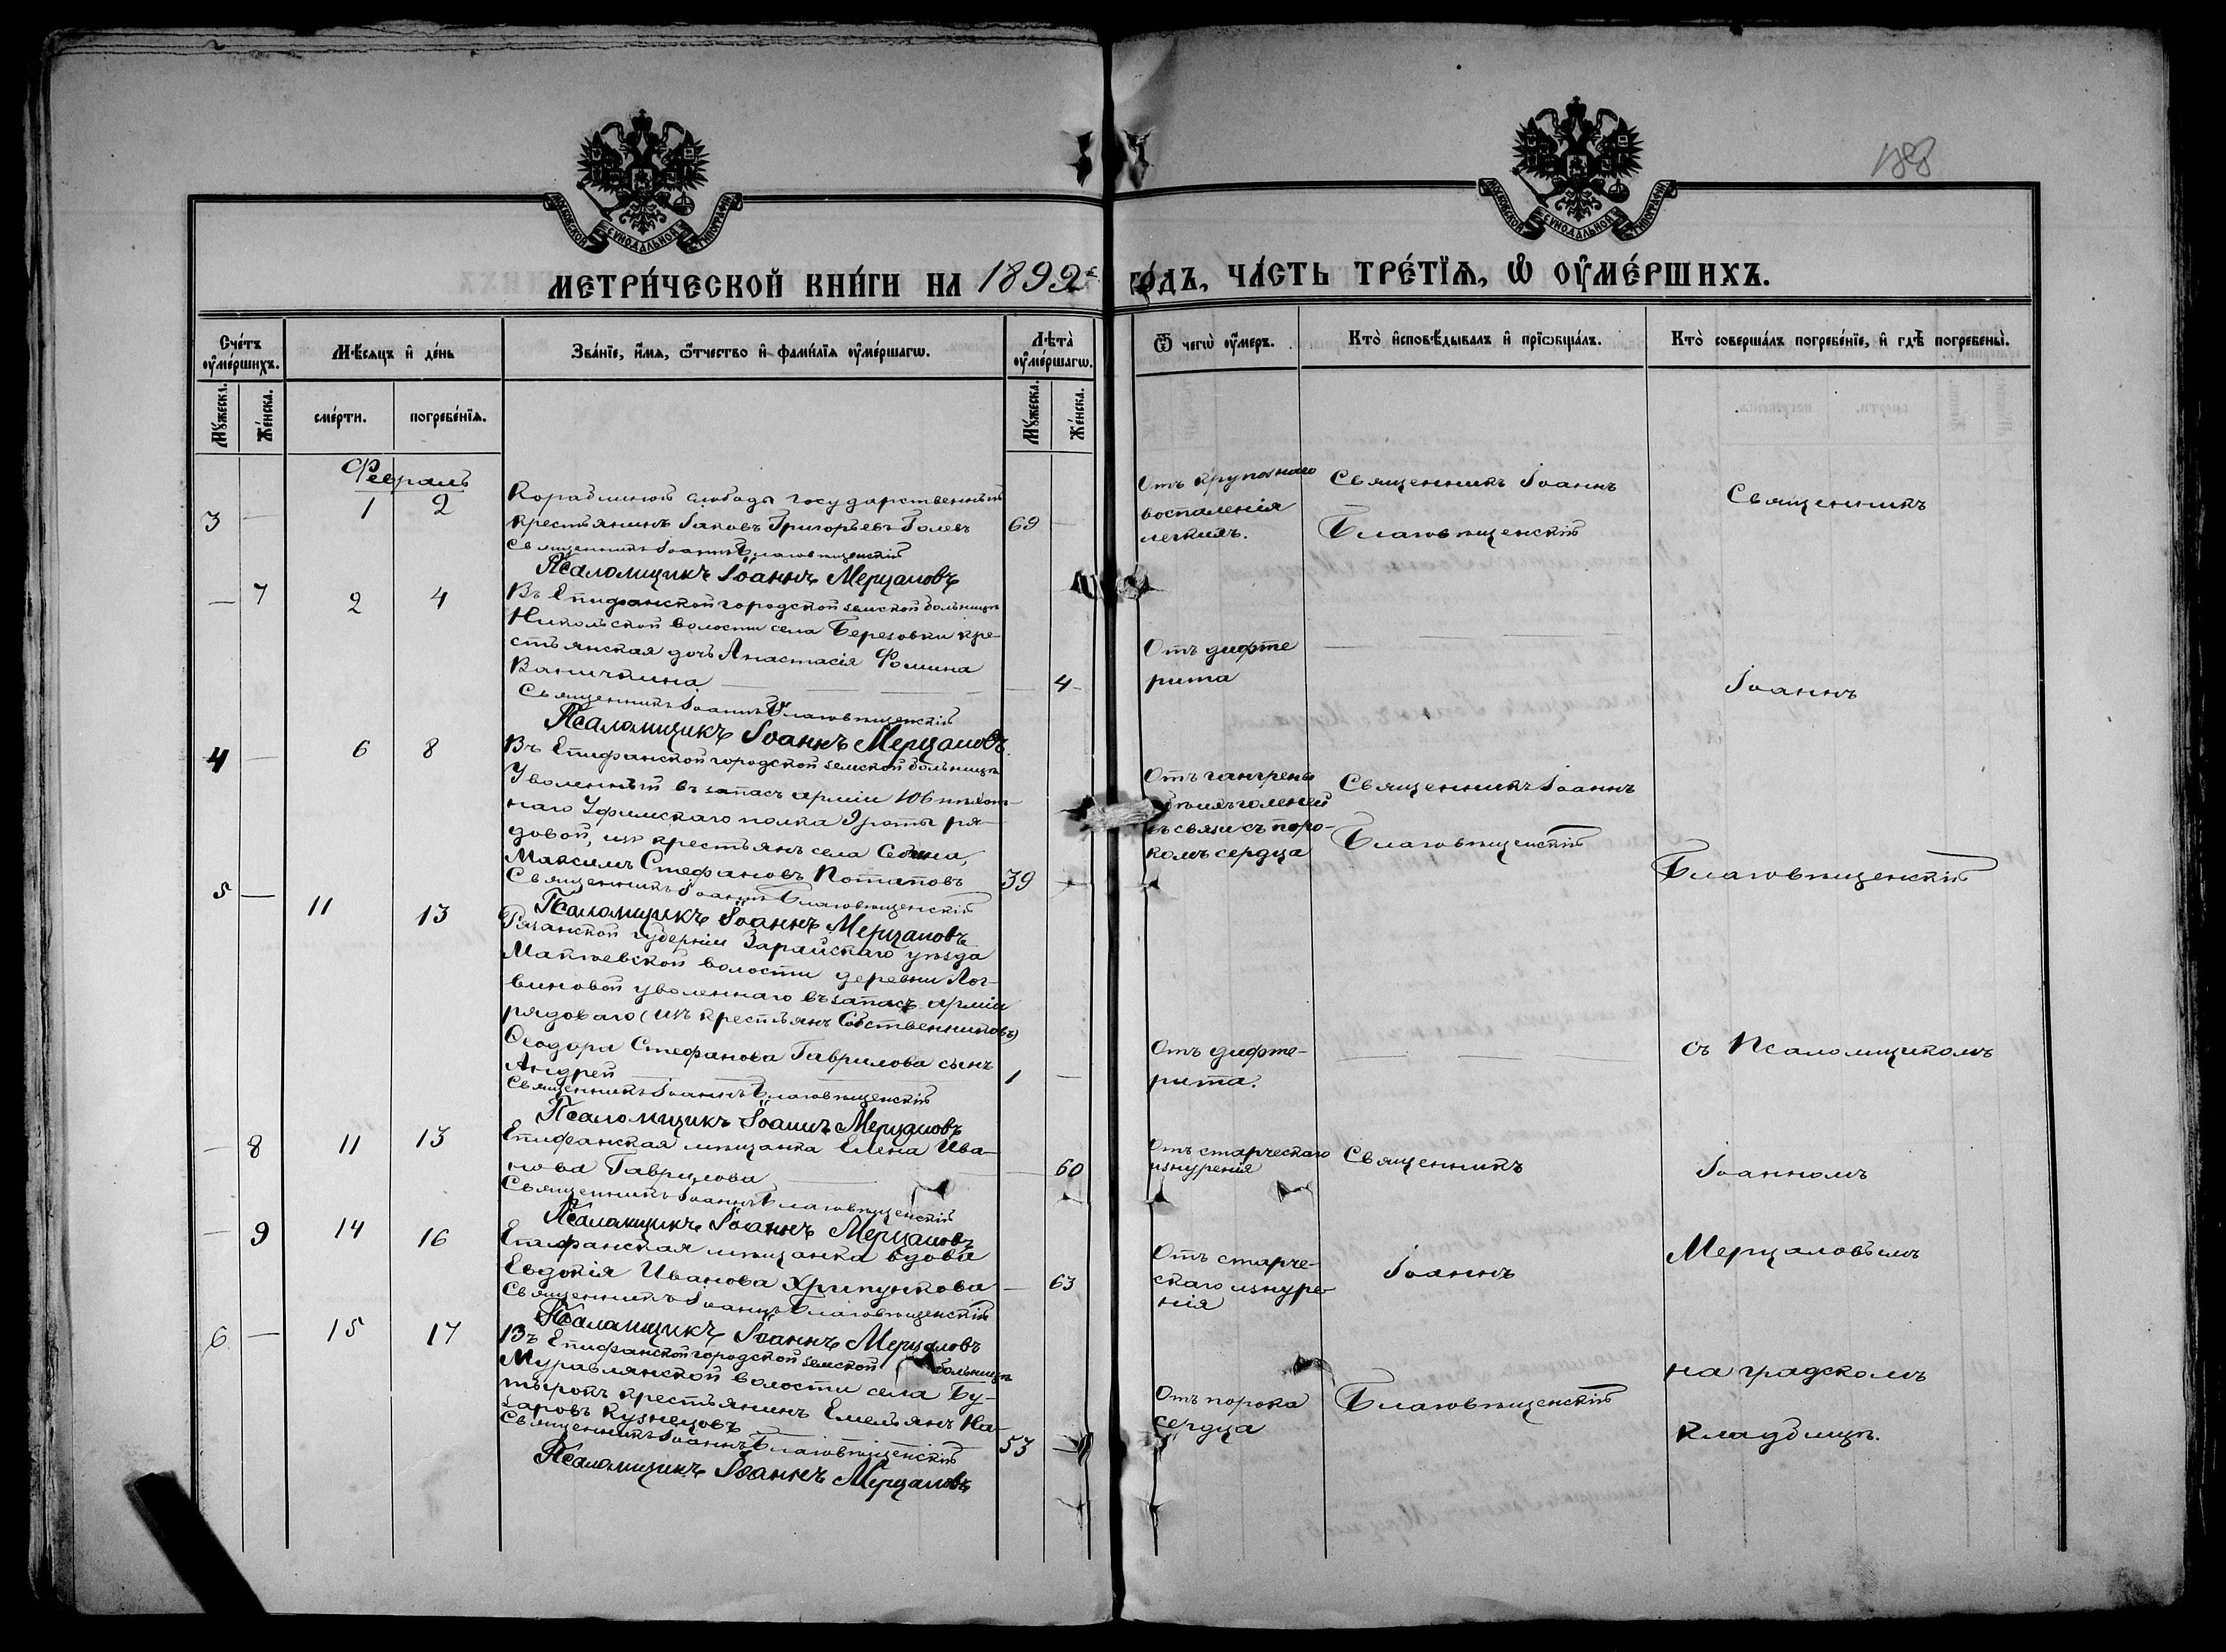 188
МОСКОВСКОЙ СѴНОДАЛЬНОЙ ТИПОГРАФІИ
МОСКОВСКОЙ СѴНОДАЛЬНОЙ ТИПОГРАФІИ
МЕТРИ́ЧЕСКОЙ КНИ́ГИ НА 1892 го́дъ, ЧА́СТЬ ТРЕ́ТЇѦ, Ѡ҆ ОУ҆МЕ́РШИХЪ.
Сче́тъ оу҆ме́ршихъ.
Мꙋ́жеска.
Же́нска.
Мѣ́сѧцъ и҆ де́нь
сме́рти.
погребе́нїѧ.
Зва́нїе, и҆́мѧ, ѻ҆́тчество и҆ фами́лїѧ оу҆ме́ршагѡ.
Лѣта̀ оу҆ме́ршагѡ.
Мꙋ́жеска.
Же́нска.
Ѿ чегѡ̀ оу҆́меръ.
Кто̀ и҆сповѣ́дывалъ и҆ прїѡбща́лъ.
Кто̀ соверша́лъ погребе́нїе, и҆ гдѣ̀ погребены̀.
Февраль
3 — 1 2
Корабдиной слободы государственный
крестьянинъ Іаковъ Григорьевъ Голевъ 69 —
Священникъ Іоаннъ Благовѣщенскій
Псаломщикъ Іоаннъ Мерцаловъ
Отъ крупознаго
воспаленія
легкихъ.
Священникъ Іоаннъ
Благовѣщенскій
— 7 2 4
Въ Епифанской городской земской больницѣ
Никольской волости села Березовки кре-
стьянская дочь Анастасія Фомина
Ваничкина — 4
Священникъ Іоаннъ Благовѣщенскій
Псаломщикъ Іоаннъ Мерцаловъ
Отъ дифте
рита
4 — 6 8
Въ Епифанской городской земской больницѣ
Уволенный въ запасъ арміи 106 пѣхот-
наго Уфимскаго полка 9 роты ря-
довой, изъ крестьянъ села Себина,
Максимъ Стефановъ Потаповъ 39 —
Священникъ Іоаннъ Благовѣщенскій
Псаломщикъ Іоаннъ Мерцаловъ
Отъ гангрены
голеней
въ связи съ поро-
комъ сердца
Священникъ Іоаннъ
Благовѣщенскій
5 — 11 13
Рязанской губерніи Зарайскаго уѣзда
Маткѣевской волости деревни Лог-
виновой уволеннаго въ запасъ арміи
рядоваго (изъ крестьянъ собственниковъ)
Ѳеодора Стефанова Гаврилова сынъ
Андрей 1 —
Священникъ Іоаннъ Благовѣщенскій
Псаломщикъ Іоаннъ Мерцаловъ
Отъ дифте-
рита.
— 8 11 13
Епифанская мѣщанка Елена Ива-
нова Гаврилова — 60
Священникъ Іоаннъ Благовѣщенскій
Псаломщикъ Іоаннъ Мерцаловъ
Отъ старческаго
изнуренія
— 9 14 16
Епифанская мѣщанка вдова
Евдокія Иванова Хрипункова — 63
Священникъ Іоаннъ Благовѣщенскій
Псаломщикъ Іоаннъ Мерцаловъ
Отъ старче-
скаго изнуре-
нія
6 — 15 17
Въ Епифанской городской земской больницѣ
Муравлянской волости села Бу-
тырокъ крестьянинъ Емельянъ На-
заровъ Кузнецовъ 53 —
Священникъ Іоаннъ Благовѣщенскій
Псаломщикъ Іоаннъ Мерцаловъ
Отъ порока
сердца
Священникъ
Іоаннъ
Благовѣщенскій
Священникъ
Іоаннъ
Благовѣщенскій
съ Псаломщикомъ
Іоанномъ
Мерцаловымъ
на градскомъ
кладбищѣ.